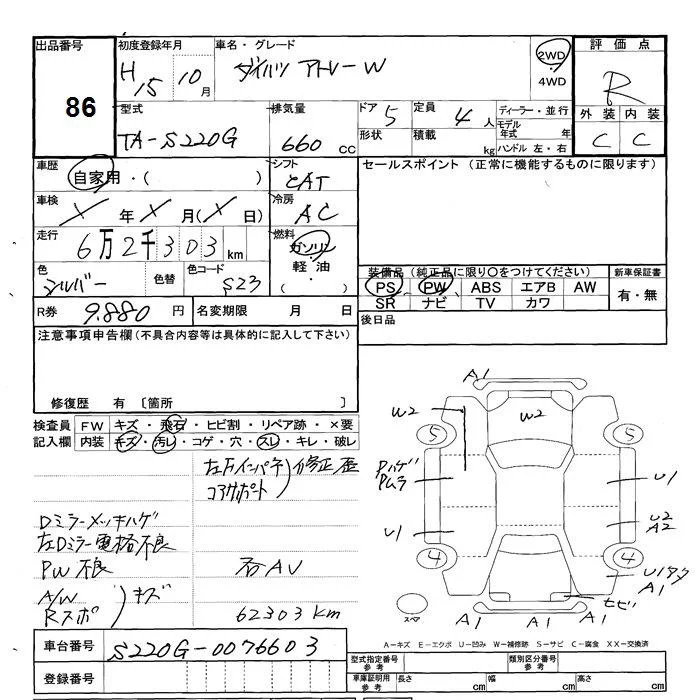 出品番号
86
初度登録年月
H15 10月
車名・グレード
ダイハツ アトレーW
2WD
4WD
評価点
R
外装 内装
C C
型式
TA-S220G
排気量
660 cc
ドア 5
形状
定員 4人
積載 kg
ディーラー・並行
モデル年式 年
ハンドル 左・右
車歴
自家用・( )
シフト
CAT
セールスポイント (正常に機能するものに限ります)
車検
X 年 X 月(X 日)
冷房
AC
走行
6万2千303km
燃料
ガソリン
軽油
( ・ )
色
シルバー
色替
色コード
S23
装備品(純正品に限り○をつけてください)
PS PW ABS エアB AW
SR ナビ TV カワ
新車保証書
有・無
R券 9.880 円
名変期限 月 日
後日品
注意事項申告欄(不具合内容等は具体的に記入して下さい)
修復歴 有 〔箇所 〕
検査員記入欄
FW キズ・飛石・ヒビ割・リペア跡・×要
内装 キズ・汚レ・コゲ・穴・スレ・キレ・破レ
左Fインパネ
コアサポート
)修正歪
Dミラーメッキハゲ
左Dミラー電格不良
PW 不良
社AV
A/W
Rスポ
)キズ
62303 km
A1
W2
W2
5
5
Pハゲ
Pムラ
U1
U2
A2
U1
4
4
U1タタ
A1
ヒビ
スペア
A1
A1
A1
A-キズ E-エクボ U-凹み W-補修跡 S-サビ C-腐食 XX-交換済
車台番号
S220G-0076603
登録番号
型式指定番号 参考
類別区分番号 参考
車庫証明記入 参考
長さ cm
幅 cm
高さ cm